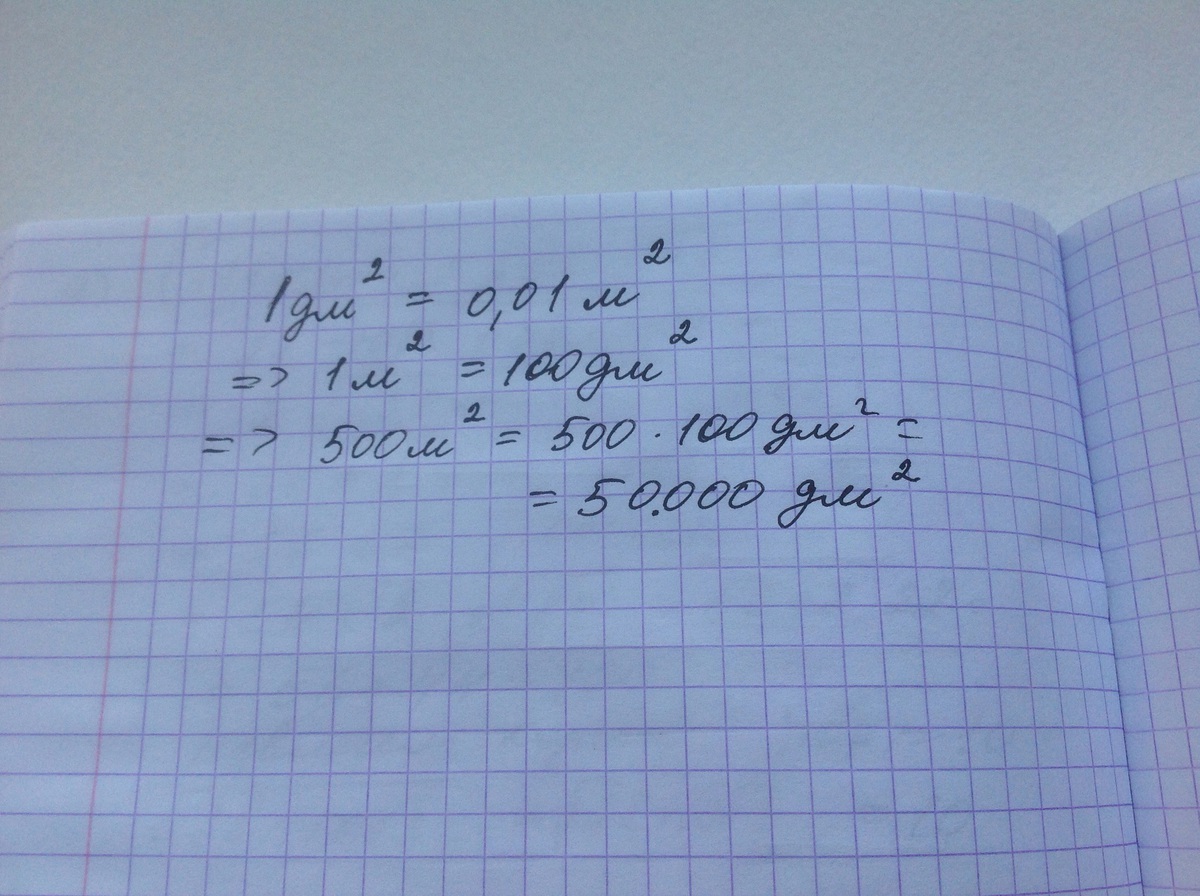 1 дм² = 0,01 м²
=> 1 м² = 100 дм²
=> 500 м² = 500 · 100 дм² =
= 50.000 дм²